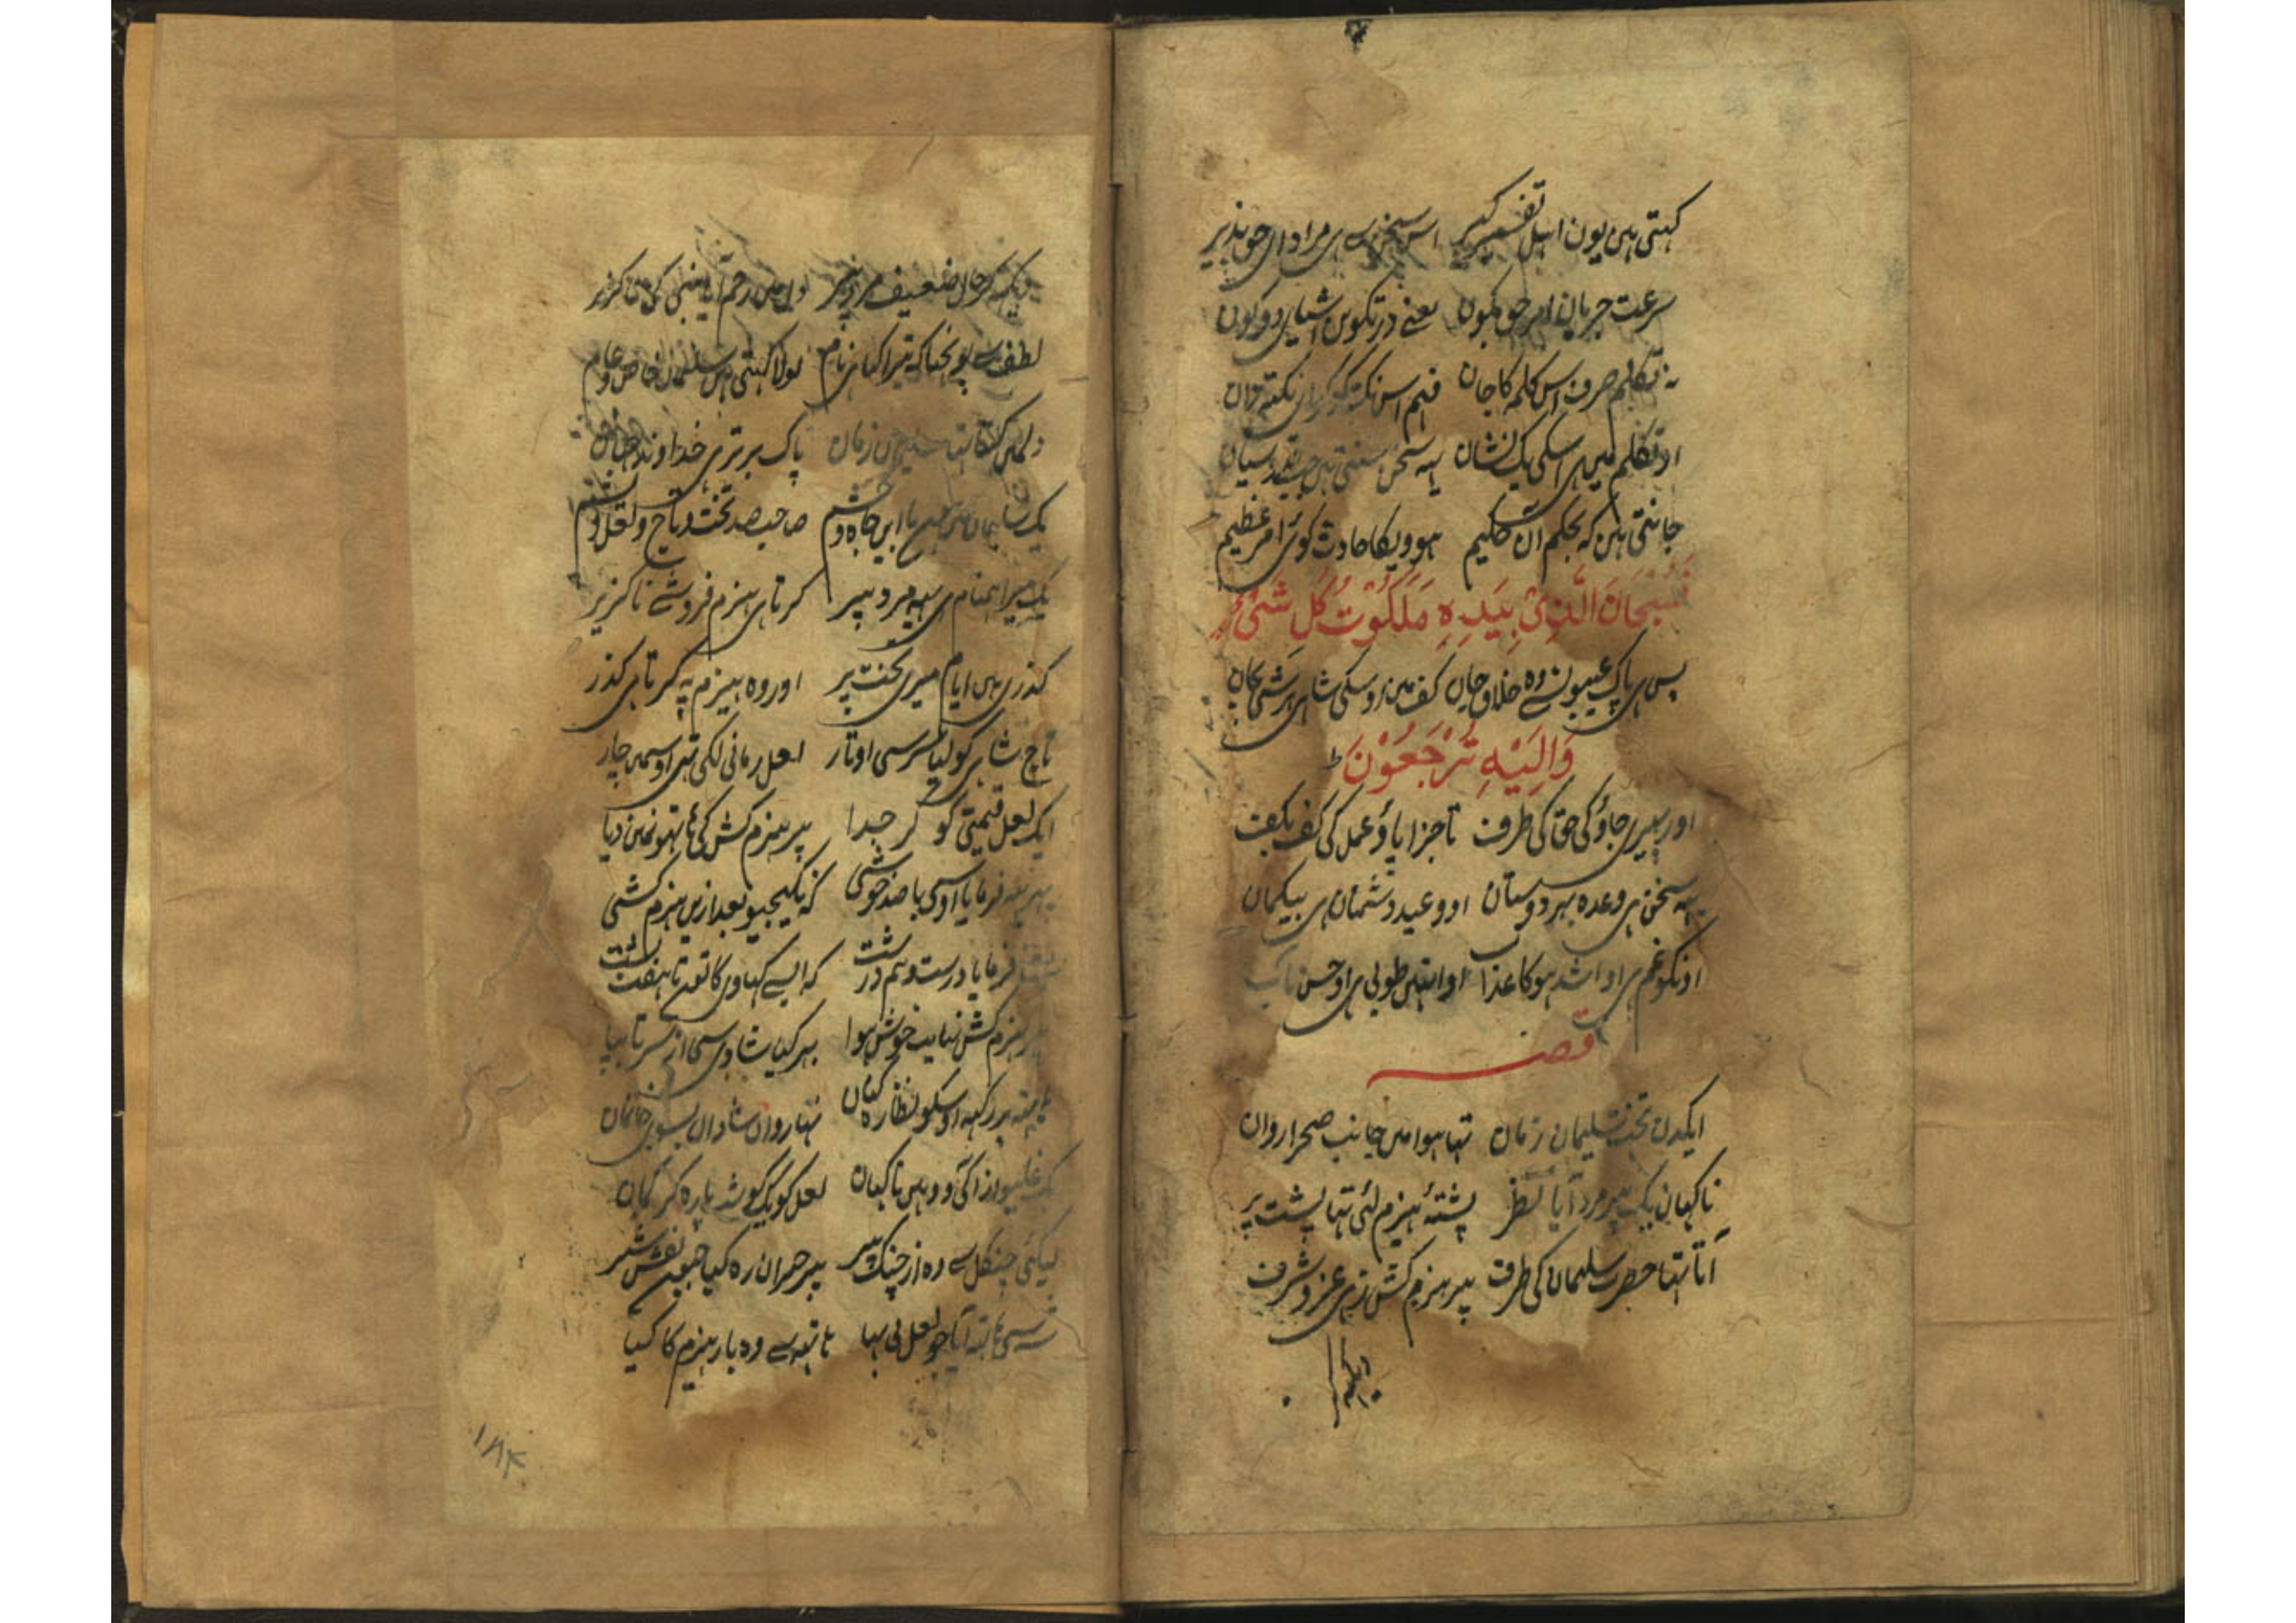 کہتی ہین یون اہل تفسیر کبیر اس سخن سے ہی مراد ای حق پذیر
سرعت جریان امر حق بکون یعنے در تکوین اشیای دو کون
نہ تکلم صرف اس کلمہ کا جان فہم اس نکتہ کو کر ای نکتہ دان
او تکلم مین ہی اسکی یک نشان یہہ سخن سنتی ہین جب
جانتی ہین کہ بحکم آن حکیم ہوویگا حادث کوئی امر عظیم
فَسُبْحَانَ الَّذِیْ بِیَدِہٖ مَلَکُوْتُ کُلِّ شَیْءٍ
پس ہی پاک عیبون سے وہ خلاق جہان کف مین اوسکی شاہی ہر شی کی جان
وَاِلَیْهِ تُرْجَعُوْنَ ط
اور پھیری جاؤ کی حق کی طرف تا جزا پاؤ عمل کی کف بکف
یہہ سخن ہی وعدہ بہر دوستان او وعید دشمنان ہی بیکمان
اونکو غم ہی او اشد ہوکا عذا او انہین طوبی ہی او حسن مآب
قصہ
ایکدن تخت سلیمان زمان تہا ہوا مین جانب صحرا روان
ناکہان یک پیر مرد آیا نظر پشتۂ ہیزم لئی تہا پشت پر
آتا تہا حضرت سلیمان کی طرف پیر ہیزم کش زہی عز و شرف
دیکہہ کر
دیکہہ کر حال ضعیف مرد پیر دل مین رحم آیا
لطف سے پوچہا کہ تیرا کیا ہی نام بولا کہتی ہین سلیمان خاص و عام
دلمین کہتا تہا سلیمان زمان پاک برتر ہی خداوند جہان
یک سلیمان مین ہون با این جاہ و حشم صاحب صد تخت و تاج و لعل و
یک میرا ہمنام ہی یہہ مرد پیر کرتا ہی ہیزم فروشے ناکزیر
گذری ہین ایام میری تخت پر اور وہ ہیزم پہ کرتا ہی کذر
تاج شاہی کو لیا سر سی اوتار لعل رمانی لکی تہی اوسمین چار
ایک لعل قیمتی کو کر جدا پیر ہیزم کش کی ہاتہو نمین دیا
پہر یہہ فرمایا اوسی با صد خوشی کہ نکیجیو بعد ازین ہیزم کشی
فرمایا درست و ہم درشت کہ اسے کہاوی کا تو تا ہفت پشت
پیر ہیزم کش نہایت خوش ہوا بہر کیا شادی سی از سر تا بپا
ہاتہہ پر رکہہ اوسکو نظارہ کنان تہا روان شادان بسوی خانمان
یک غلیواز آکی وو ہین ناکہان لعل کو یک کوشت پارہ کر کمان
لیکئی چنکل سے وہ از چنک پیر پیر حیران رہ کیا جون نقش شیر
ہاتہہ آیا جو لعل بی بہا ہاتہہ سے وہ بار ہیزم کا کیا
۱۸۴